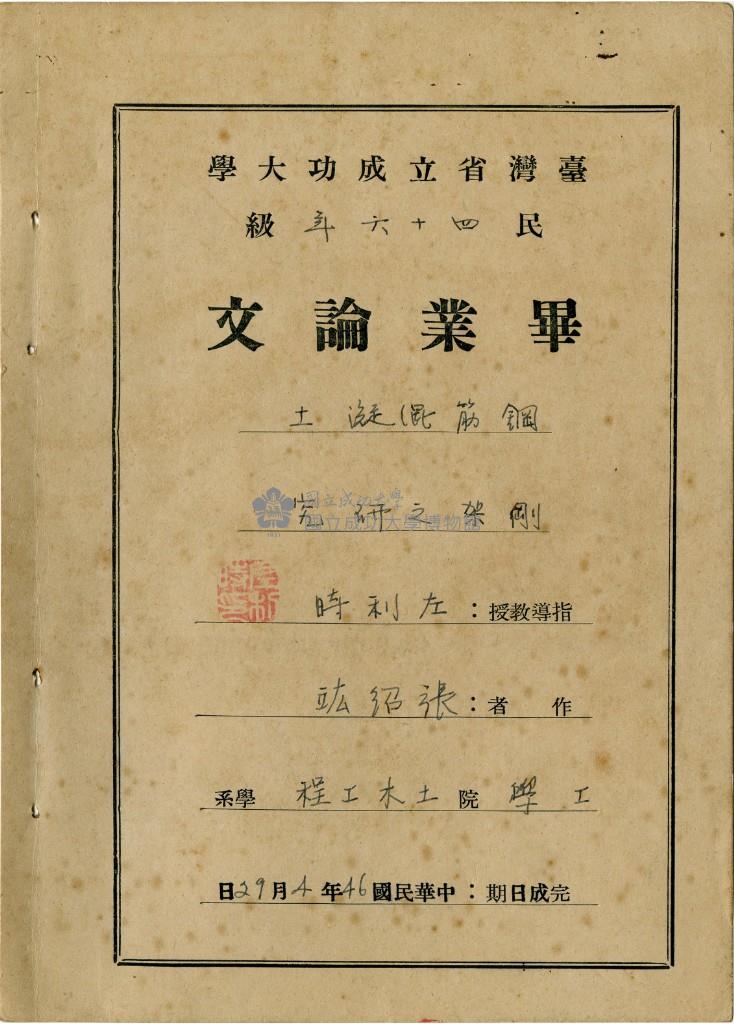 臺灣省立成功大學
民四十六年級
畢業論文
鋼筋混凝土
剛架之研究
國立成功大學
國立成功大學博物館
1931
指導教授：左利時
作者：張紹竑
工學院土木工程學系
完成日期：中華民國46年4月29日